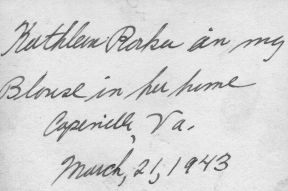 Kathleen Rorker in my
Blouse in her home
Capeville, Va.
March, 21, 1943